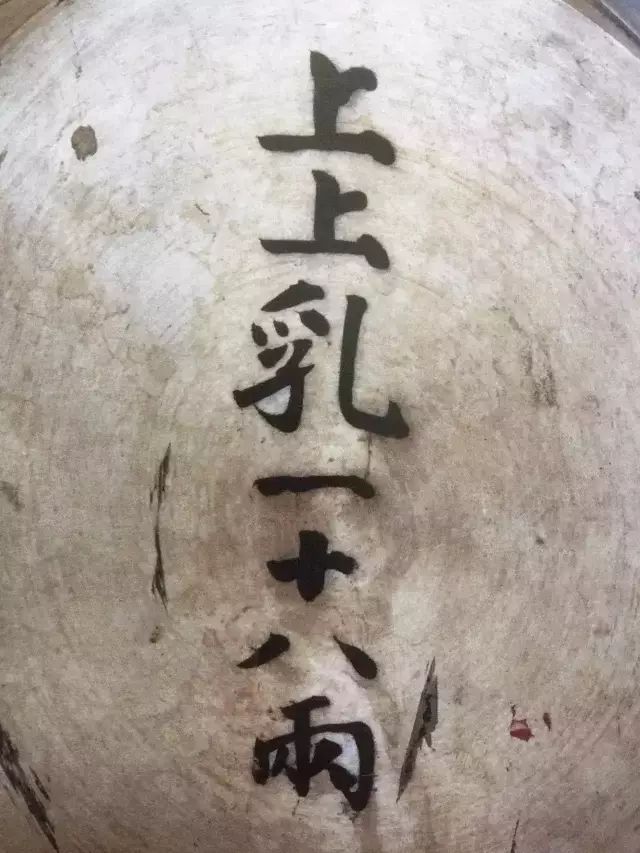 上上乳一十八兩